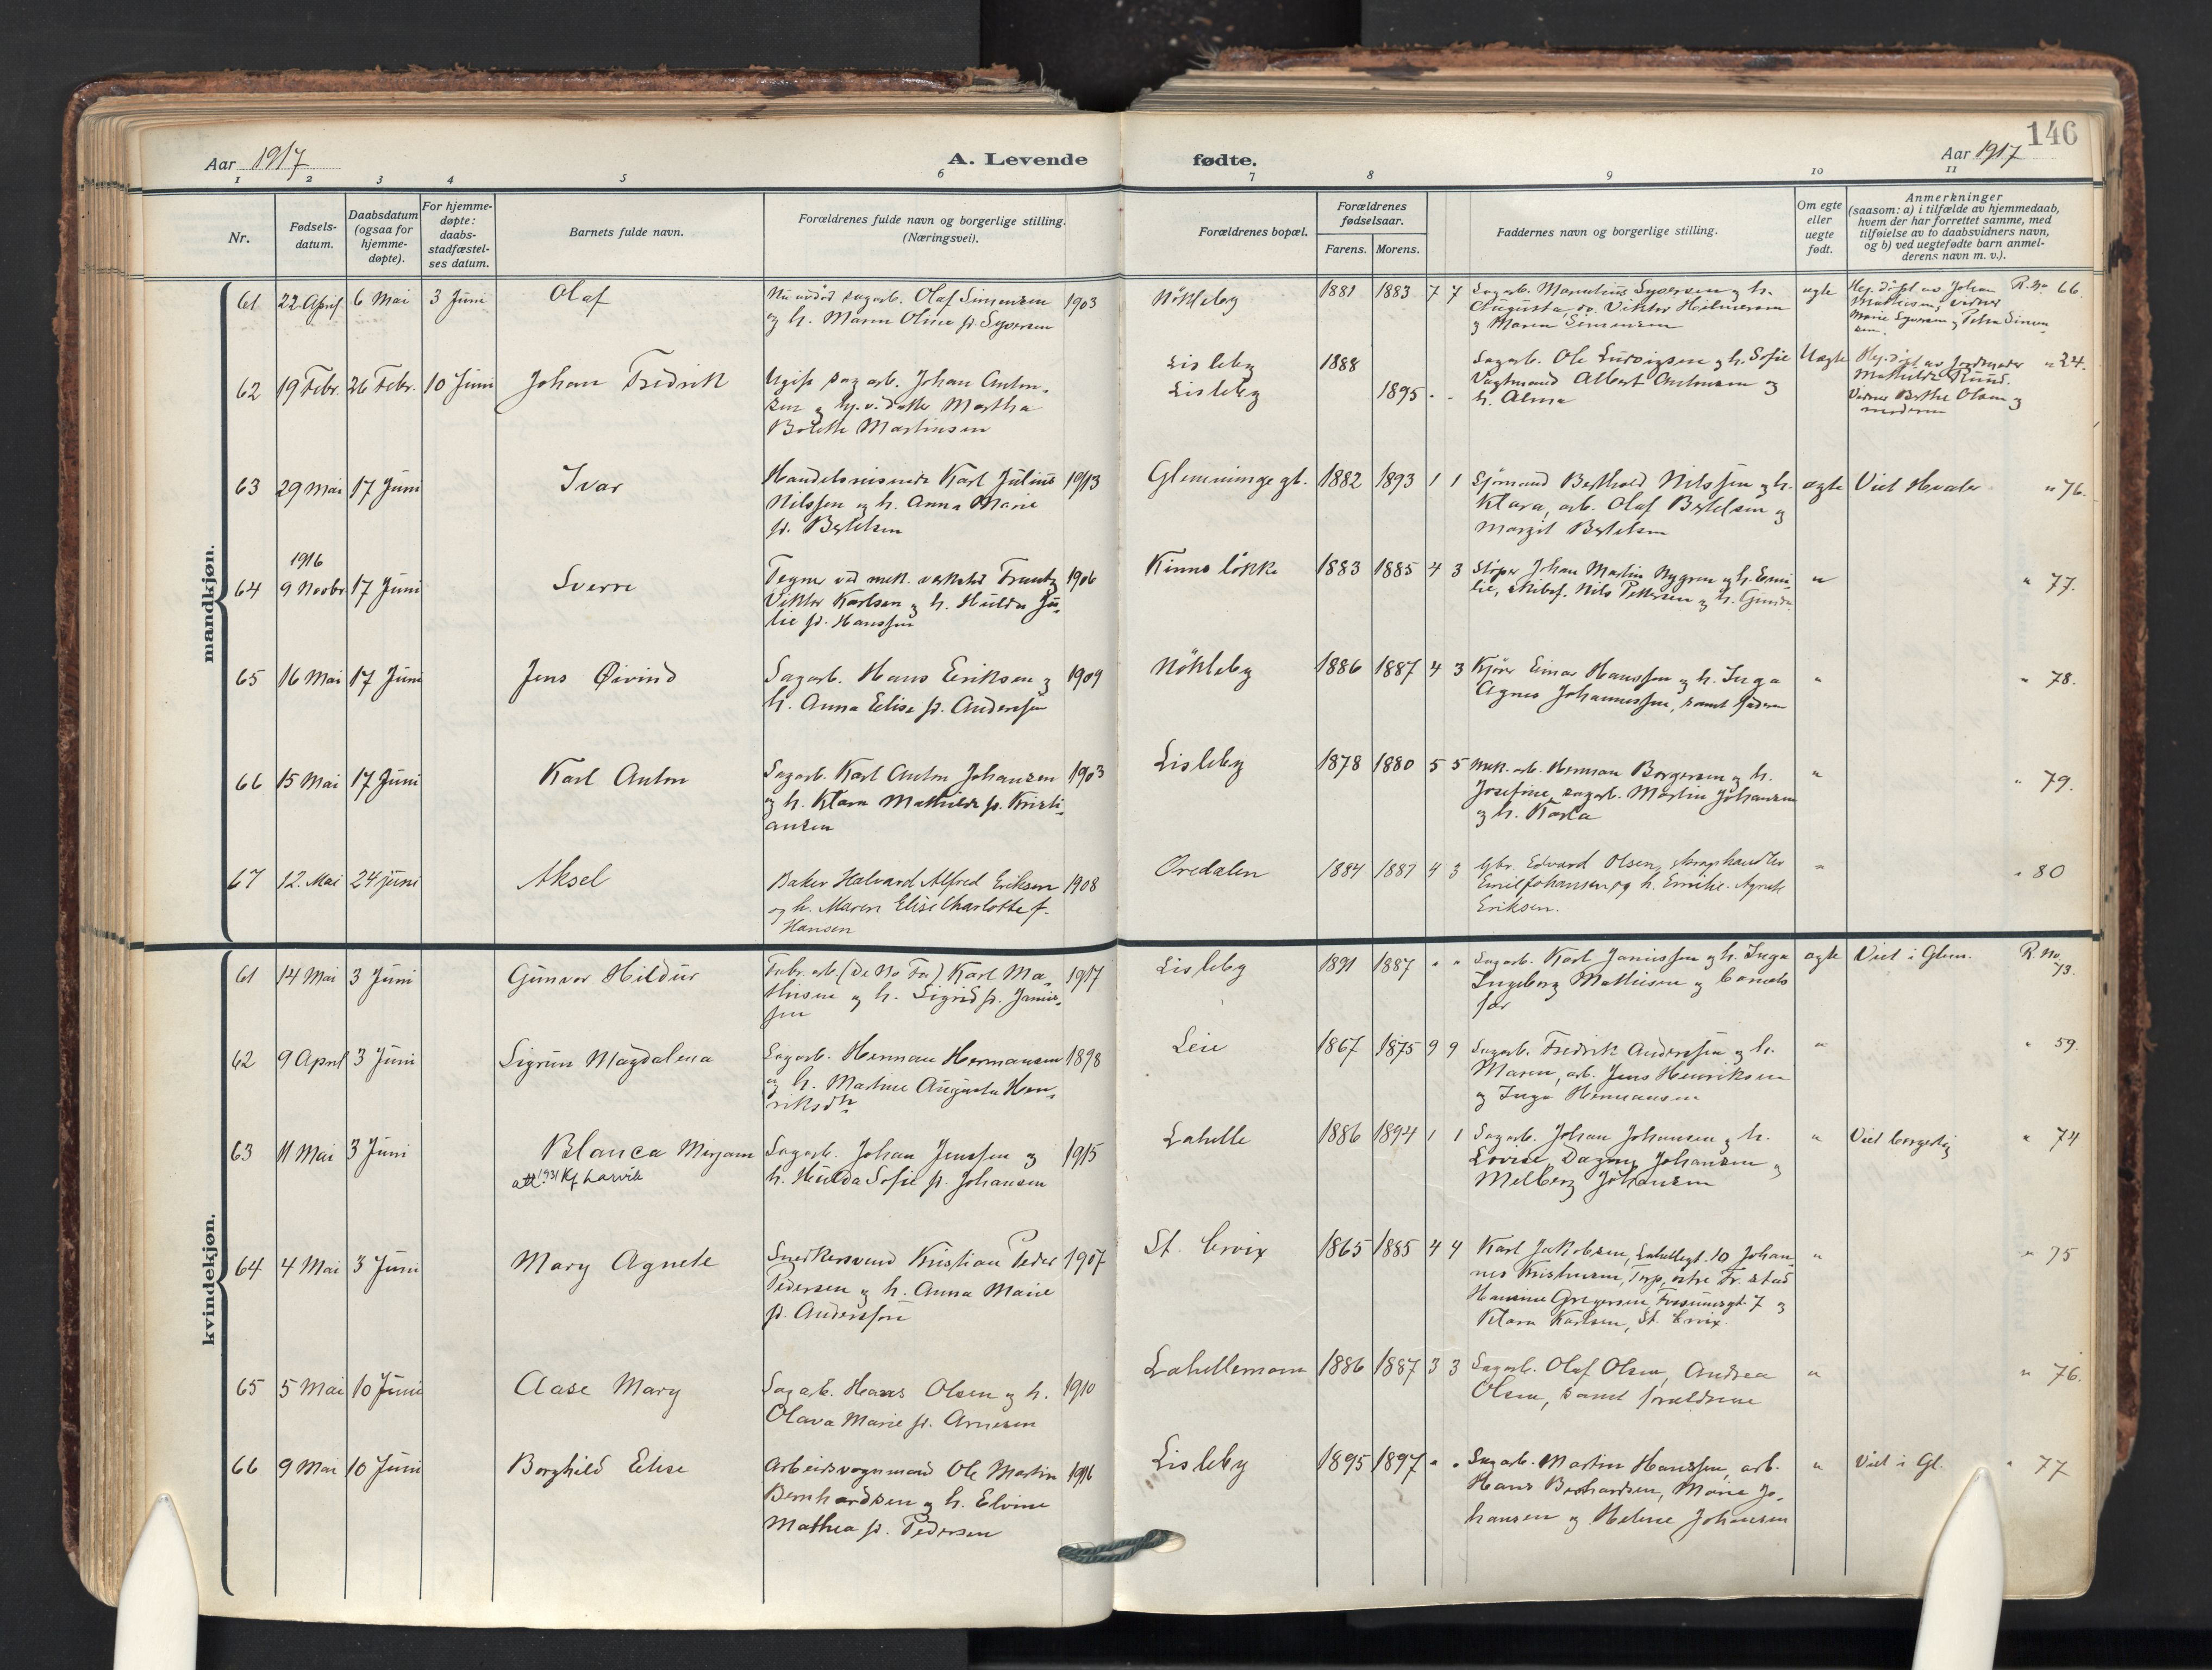 146
Aar 1917
A. Levende
fødte.
Aar 1917
1 2 3 4 5 6 7 8 9 10 11
Nr.
Fødsels-
datum.
Daabsdatum
(ogsaa for
hjemme-
døpte).
For hjemme-
døpte:
daabs-
stadfæstel-
ses datum.
Barnets fulde navn.
Forældrenes fulde navn og borgerlige stilling.
(Næringsvei).
Forældrenes bopæl.
Forældrenes
fødselsaar.
Farens. Morens.
Faddernes navn og borgerlige stilling.
Om egte
eller
uegte
født.
Anmerkninger
(saasom: a) i tilfælde av hjemmedaab,
hvem der har forrettet samme, med
tilføielse av to daabsvidners navn,
og b) ved uegtefødte barn anmel-
derens navn m. v.).
mandkjøn.
61 22 April 6 Mai 3 Juni Olaf
Nu avdød sagarb. Olaf Simensen 1903
og h. Maren Oline f. Syversen
Nökleby 1881 1883 7 7
Sagarb. Syversen og h.
Augusta, do. Viktor
og Maren Simensen
egte
Hj. döpt av Johan R. No 66.
Mathisen, vidner
Marie Syversen og Petra Simen-
sen.
62 19 Febr. 26 Febr. 10 Juni Johan Fredrik
Ugift sagarb. Johan Anton-
sen og hj. v. datter Martha
Bolette Martinsen
Lisleby 1888
Lisleby 1895 - -
Sagarb. Ole Ludvigsen og h. Sofie
Vagtmand Albert Antonsen og
h. Alma
Uegte
Hj. döpt av Jordmoder " 24.
Mathilde Ruud.
Vidner Berthe Olsen og
moderen
63 29 Mai 17 Juni Ivar
Handelsreisende Karl Julius 1913
Nilssen og h. Anna Marie
f. Bertelsen
Glemminge gt. 1882 1893 1 1
Sjömand Berthold Nilssen og h.
Klara, arb. Olaf Bertelsen og
Margit Bertelsen
egte Viet Hvaler " 76.
1916
64 9 Novbr 17 Juni Sverre
Tegner ved mek. verksted Frantz 1906
Viktor Karlsen og h. Hulda Ju-
lie f. Hanssen
Kinnalökka 1883 1885 4 3
Stöper Johan Martin Nygren og h. Emi-
lie, skibsf. Nils Pettersen og h.
" " 77.
65 16 Mai 17 Juni Jens Øivind
Sagarb. Hans Eriksen og 1909
h. Anna Elise f. Anderssen
Nökleby 1886 1887 4 3
Kjörer Einar Hanssen og h. Inga
Agnes Johannessen, samt faderen
" " 78.
66 15 Mai 17 Juni Karl Anton
Sagarb. Karl Anton Johansen 1903
og h. Klara Mathilde f. Kristi-
ansen
Lisleby 1878 1880 5 5
Mek. arb. Herman Borgersen og h.
Josefine, sagarb. Martin Johansen
og h. Karla
" " 79.
67 12. Mai 24 juni Aksel
Baker Halvard Alfred Eriksen 1908
og h. Maren Elise Charlotte f.
Hansen
Oredalen 1884 1887 4 3
Gbr. Edvard Olsen, skraphandler
Emil Johansen og h. Emilie. Agnete
Eriksen.
" " 80
kvindekjøn.
61 14 Mai 3 Juni Gunvor Hildur
Fabr. arb. (De No Fa) Karl Ma- 1917
thisen og h. Sigrid f. Janius-
sen
Lisleby 1891 1887 " "
Sagarb. Karl Janiussen og h. Inga
Ingeborg Mathisen og barnets
far
egte Viet i Glem. R. No
73.
62 9 April 3 Juni Sigrun Magdalena
Sagarb. Herman Hermansen 1898
og h. Martine Augusta Hen-
riksdtr
Leie 1867 1875 9 9
Sagarb. Fredrik Anderssen og h.
Maren, arb. Jens Henriksen
og Inga Hermansen
" " 59.
63 11 Mai 3 Juni Blanca Mirjam
att. 1931 Kf Larvik
Sagarb. Johan Jenssen og 1915
h. Hulda Sofie f. Johansen
Lahelle 1886 1894 1 1
Sagarb. Johan Johansen og h.
Lovise, Dagny Johansen og
Melberg Johansen
" Viet borgerlig " 74
64 4 Mai 3 Juni Mary Agnete
Snekkersvend Kristian Peder 1907
Pedersen og h. Anna Marie
f. Anderssen
St. Croix 1865 1885 4 4
Karl Jakobsen, Lahellegt. 10 Johan-
nes Kristensen, Torp, østre Fr.stad
Hansine Gregersen, 7 og
Klara Karlsen, St. Croix.
" " 75
65 5 Mai 10 Juni Aase Mary
Sagarb. Hans Olsen og h. 1910
Olava Marie f. Arnesen
Lahellemoen 1886 1887 3 3
Sagarb. Olaf Olsen, Andrea
Olsen, samt forældrene
" " 76.
66 9 Mai 10 Juni Borghild Elise
Arbeidsvognmand Ole Martin 1916
Bernhardsen og h. Elvine
Mathea f. Pedersen
Lisleby 1895 1897 " "
Sagarb. Martin Hanssen, arb.
Hans Bernhardsen, Marie Jo-
hansen og Helene Johansen
" Viet i Gl. " 77